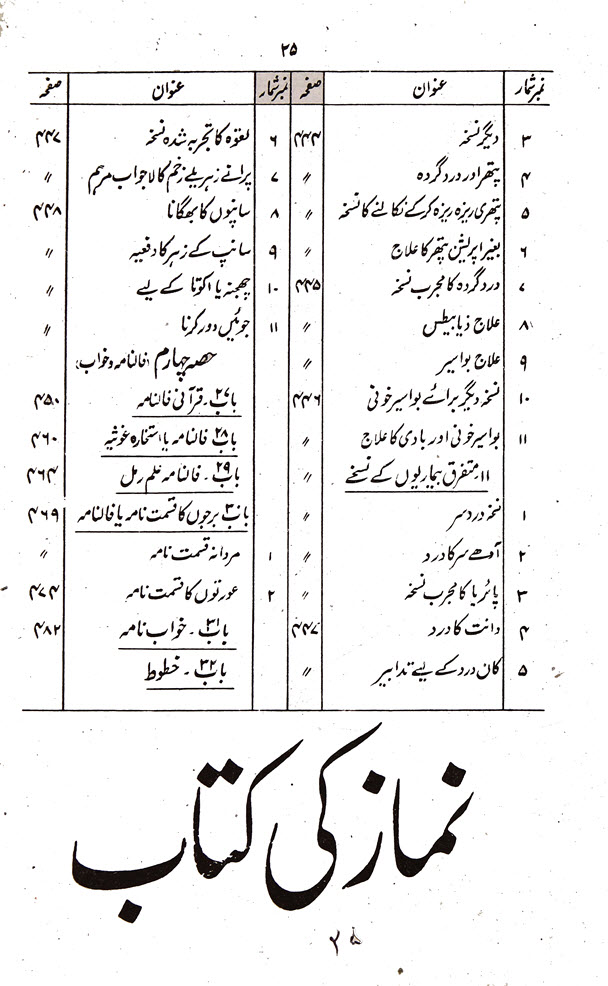 ۲۵
نمبر شمار عنوان صفحہ
۳ دیگر نسخہ ۴۴۴
۴ پتھر اور درد گردہ 〃
۵ پتھری ریزہ ریزہ کرکے نکالنے کا نسخہ 〃
۶ بغیر اپریشن پتھر کا علاج 〃
۷ درد گردہ کا مجرب نسخہ ۴۴۵
۸ علاج ذیابیطس 〃
۹ علاج بواسیر 〃
۱۰ نسخہ دیگر برائے بواسیر خونی ۴۴۶
۱۱ بواسیر خونی اور بادی کا علاج 〃
۱۱ متفرق بیماریوں کے نسخے 〃
۱ نسخہ درد سر 〃
۲ آدھے سر کا درد 〃
۳ پائریا کا مجرب نسخہ 〃
۴ دانت کا درد ۴۴۷
۵ کان درد کے لیے تدابیر 〃
نمبر شمار عنوان صفحہ
۶ لقوہ کا تجربہ شدہ نسخہ ۴۴۷
۷ پرانے زہریلے زخم کا لاجواب مرہم 〃
۸ سانپوں کا بھگانا ۴۴۸
۹ سانپ کے زہر کا دفعیہ 〃
۱۰ چھجنہ یا اکوتا کے لیے 〃
۱۱ جوئیں دور کرنا 〃
حصہ چہارم (فالنامہ و خواب)
باب ۲۷۔ قرآنی فالنامہ ۴۵۰
باب ۲۸ فالنامہ یا استخارہ غوثیہ ۴۶۰
باب ۲۹۔ فالنامہ علم رمل ۴۶۴
باب ۳۰ برجوں کا قسمت نامہ یا فالنامہ ۴۶۹
۱ مردانہ قسمت نامہ 〃
۲ عورتوں کا قسمت نامہ ۴۷۴
باب ۳۱۔ خواب نامہ ۴۸۲
باب ۳۲۔ خطوط
نماز کی کتاب
۲۵